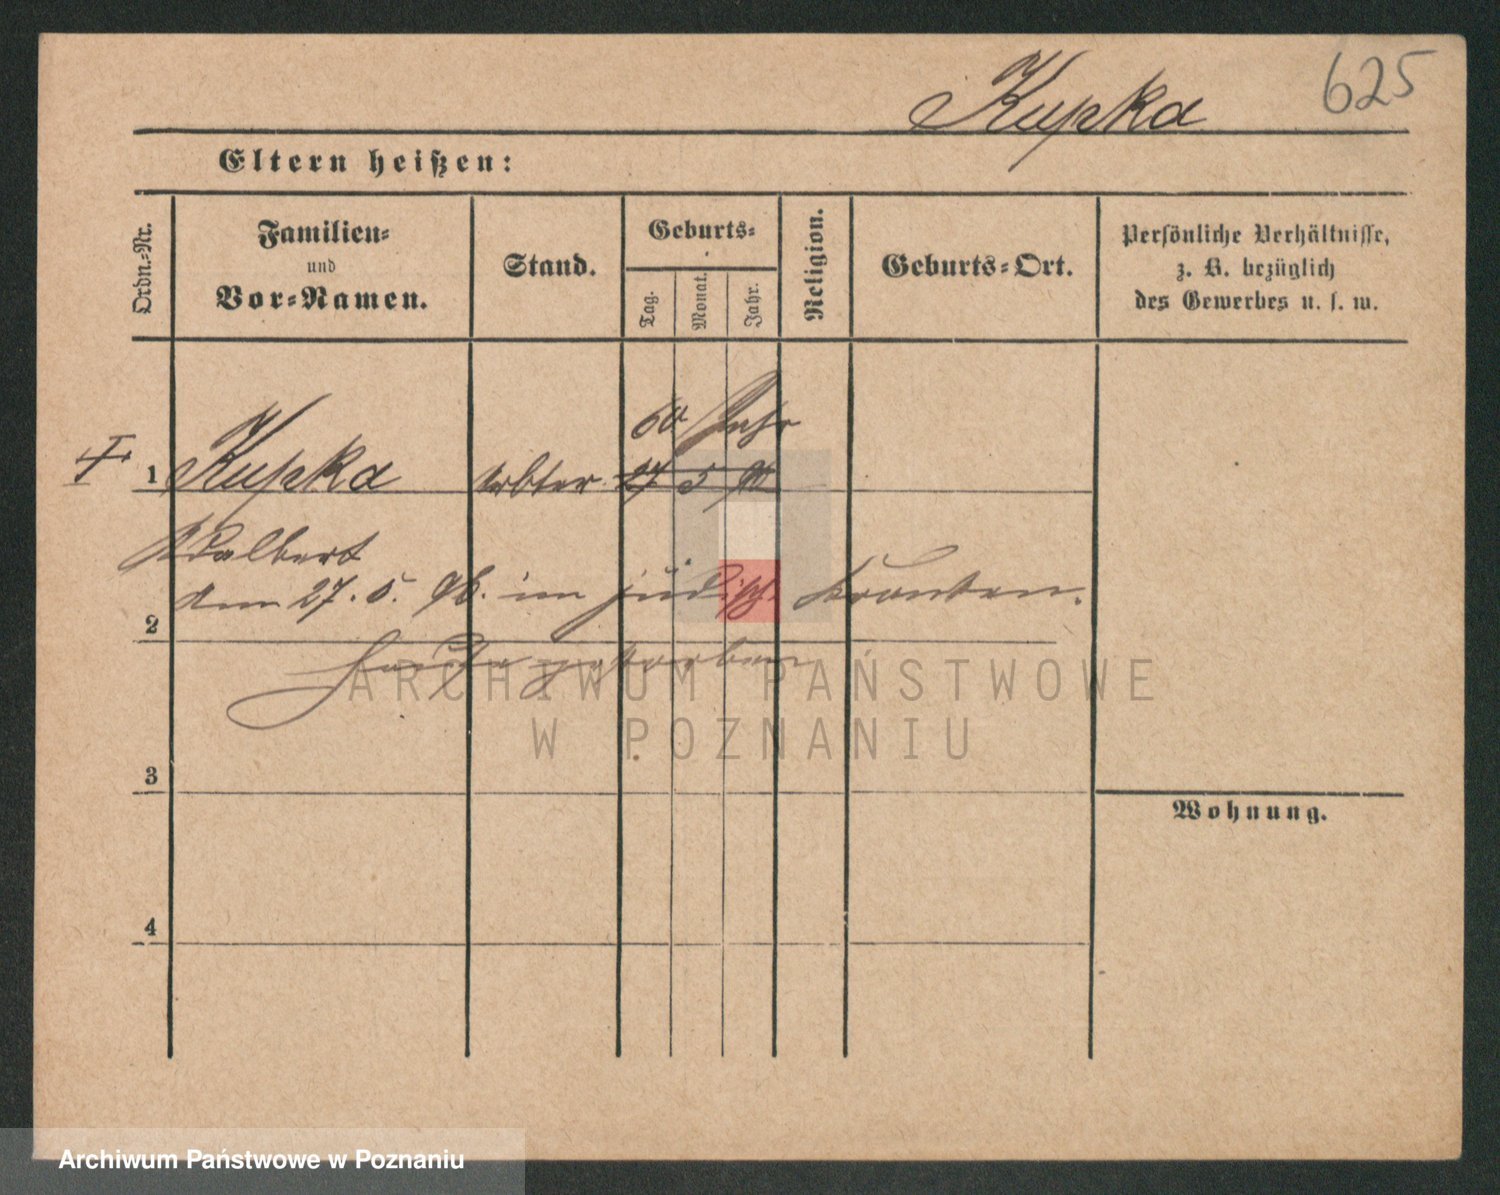 625
Kupka
Eltern heißen:
Ordn.-Nr.
Familien-
und
Vor-Namen.
Stand.
Geburts-
Tag.
Monat.
Jahr.
Religion.
Geburts-Ort.
Persönliche Verhältnisse,
z. B. bezüglich
des Gewerbes u. s. w.
60 Jahr
1 Kupka Arbter. 27 5
Adalbert
2 am 27. 5. 96. im jüdisch. Kranken-
hause gestorben
ARCHIWUM PAŃSTWOWE
W POZNANIU
3
Wohnung.
4
Archiwum Państwowe w Poznaniu